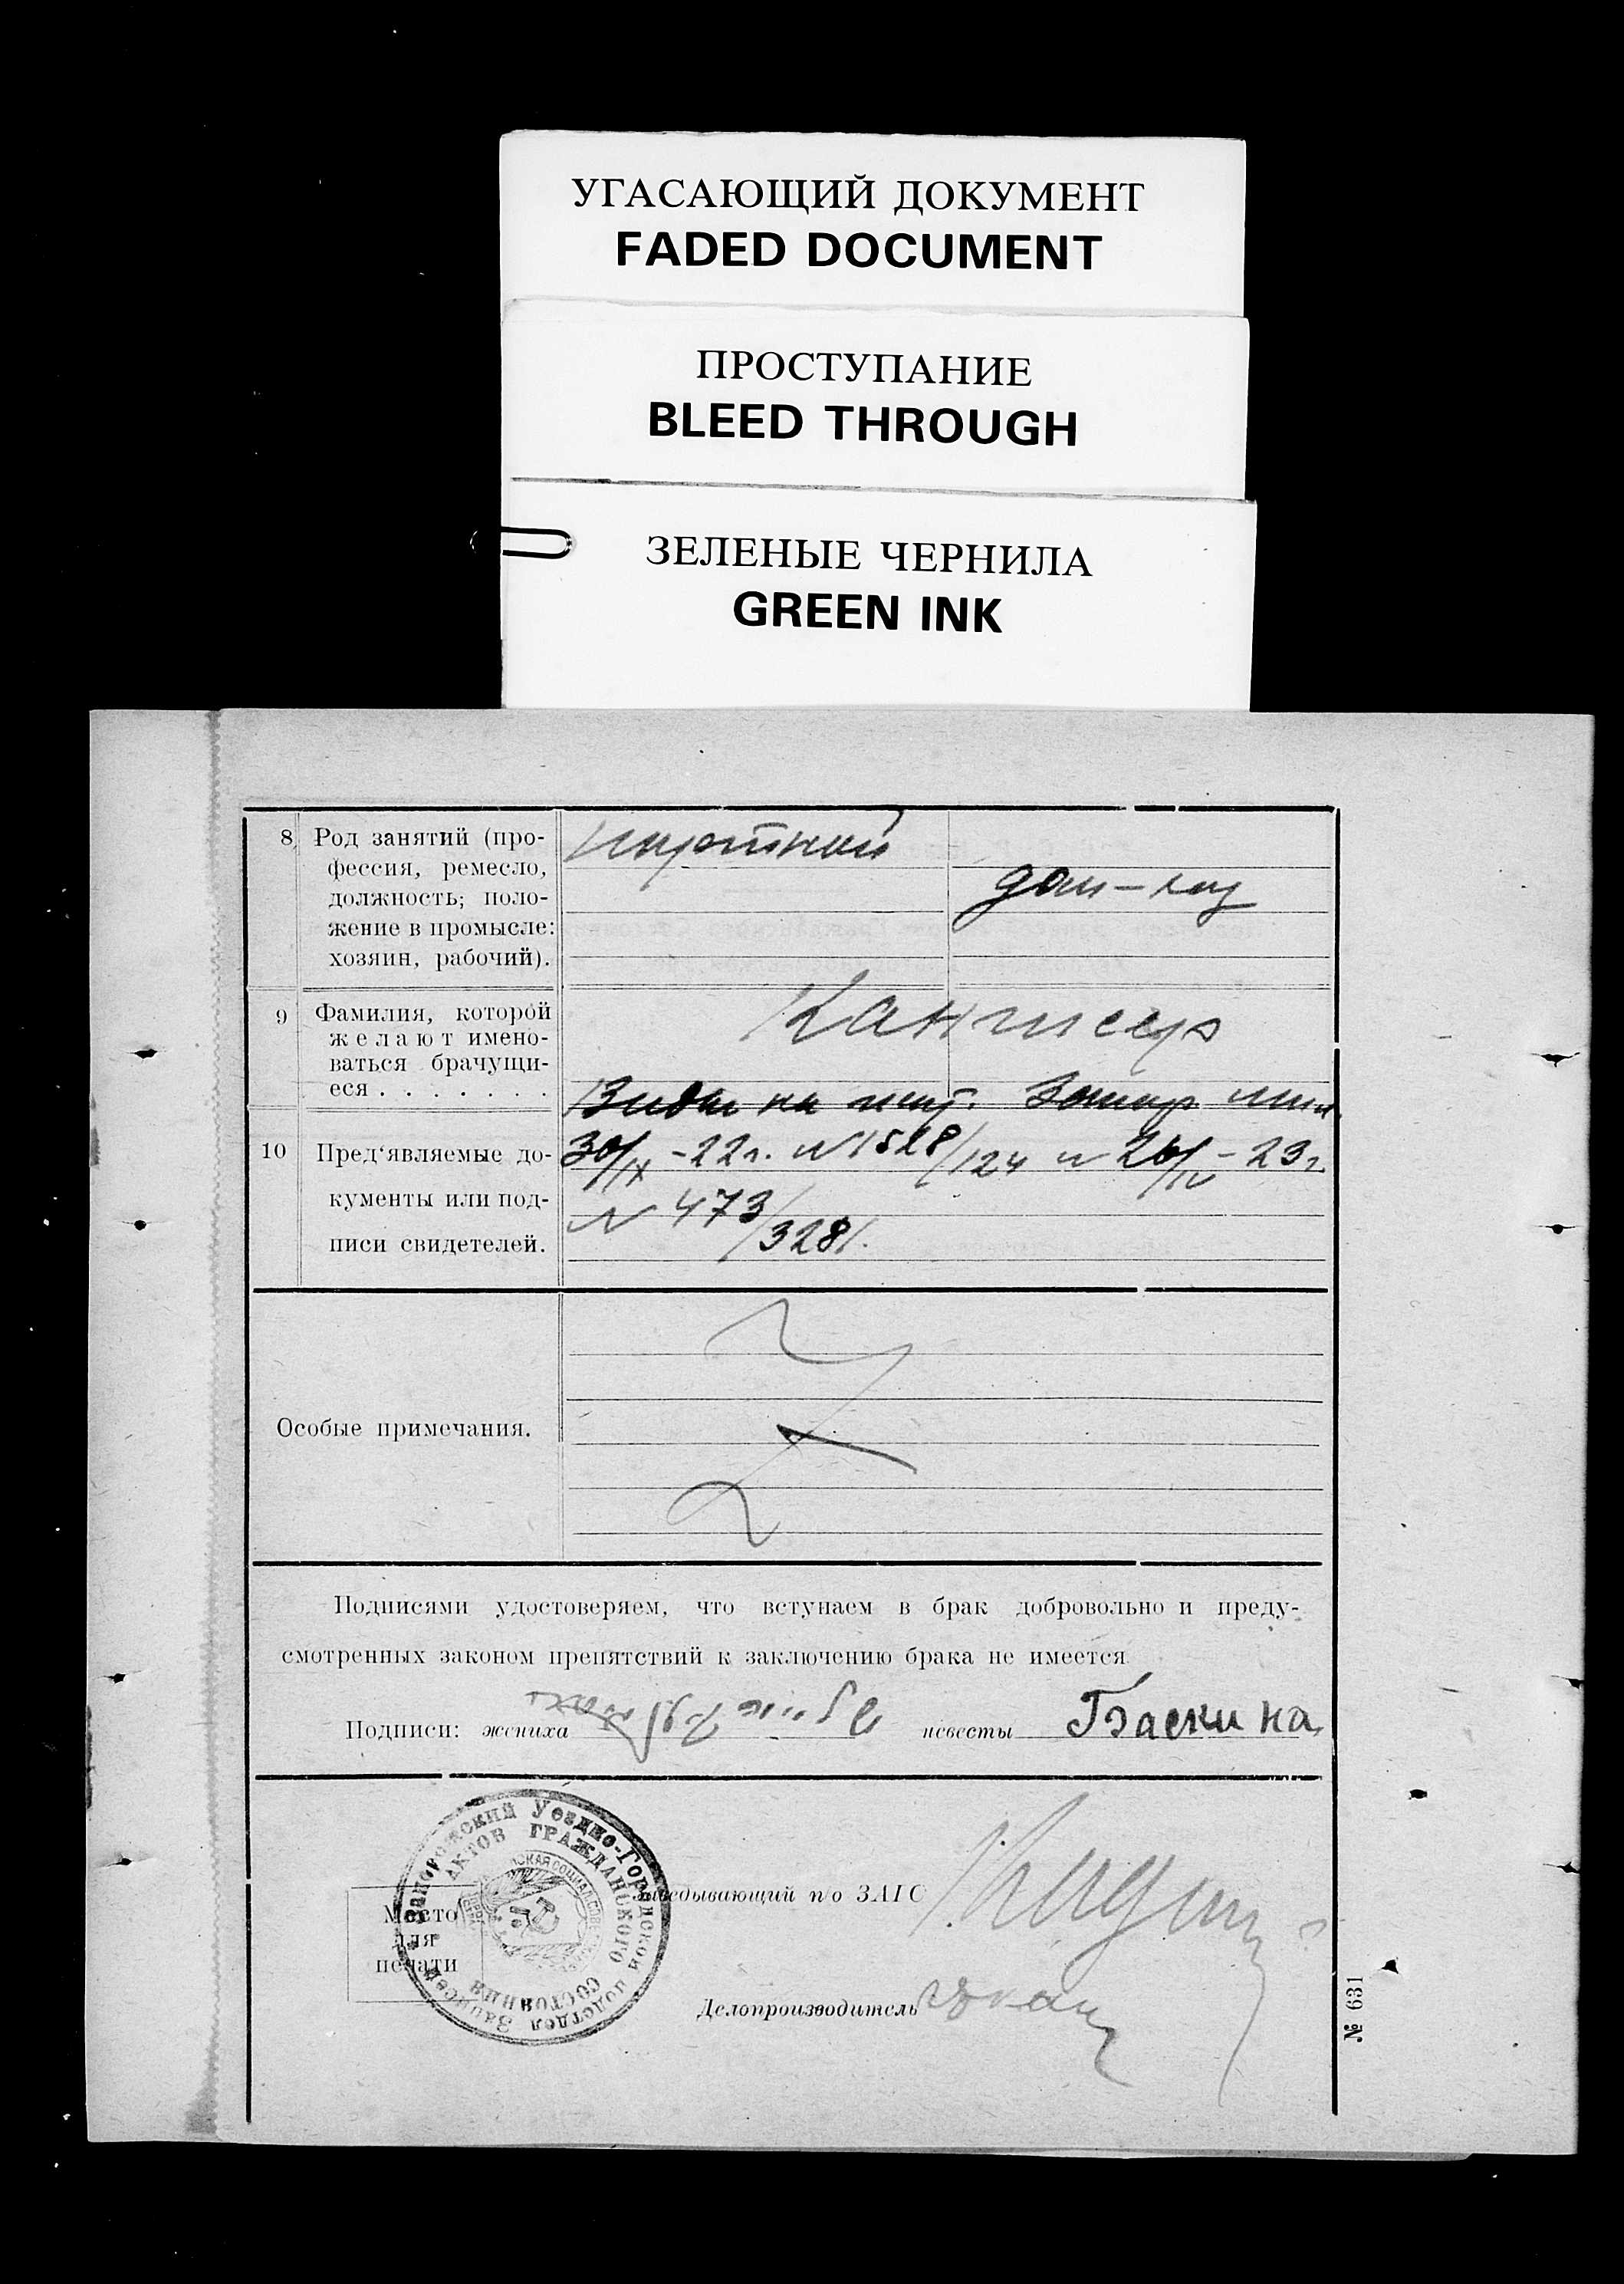 УГАСАЮЩИЙ ДОКУМЕНТ
FADED DOCUMENT
ПРОСТУПАНИЕ
BLEED THROUGH
ЗЕЛЕНЫЕ ЧЕРНИЛА
GREEN INK
8 Род занятий (про-
фессия, ремесло,
должность; поло-
жение в промысле:
хозяин, рабочий).
портной
дом-хоз
9 Фамилия, которой
желают имено-
ваться брачущи-
еся . . . . . . .
10 Пред‘являемые до-
кументы или под-
писи свидетелей.
Виды на жит. Запор мил.
30/IX -22г. №1528/124 и 26/IV - 23г.
№ 473/3281.
Особые примечания.
Подписями удостоверяем, что вступаем в брак добровольно и преду-
смотренных законом препятствий к заключению брака не имеется.
Подписи: жениха невесты Баскина
Запорожский Уездно-Городской подотдел Записей
АКТОВ ГРАЖДАНСКОГО СОСТОЯНИЯ
Место
для
печати
Заведывающий по ЗАГС
Делопроизводитель
№ 631